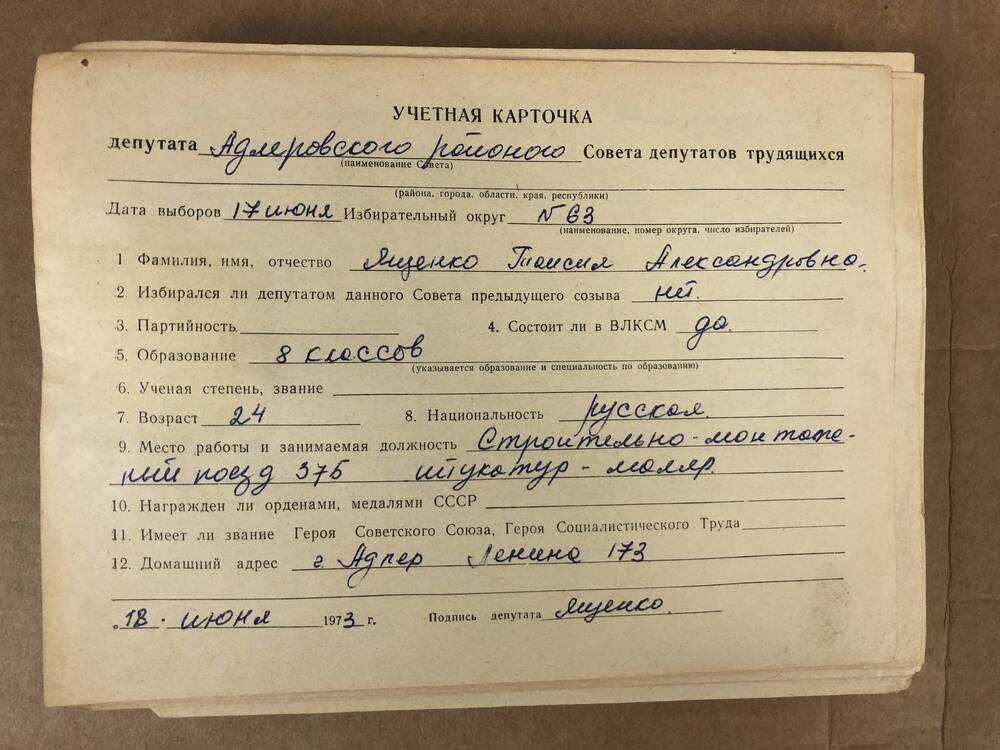 УЧЕТНАЯ КАРТОЧКА
депутата Адлеровского районого Совета депутатов трудящихся
(наименование Совета)
(района, города, области, края, республики)
Дата выборов 17 июня Избирательный округ № 63
(наименование, номер округа, число избирателей)
1 Фамилия, имя, отчество Ященко Таисия Александровна.
2. Избирался ли депутатом данного Совета предыдущего созыва нет.
3. Партийность 4. Состоит ли в ВЛКСМ да.
5. Образование 8 классов
(указывается образование и специальность по образованию)
6. Ученая степень, звание
7. Возраст 24 8. Национальность русская.
9. Место работы и занимаемая должность Строительно-монтаж-
ный поезд 375 штукатур-маляр.
10. Награжден ли орденами, медалями СССР
11. Имеет ли звание Героя Советского Союза, Героя Социалистического Труда
12. Домашний адрес г. Адлер Ленина 173
18. июня 1973 г. Подпись депутата Ященко.